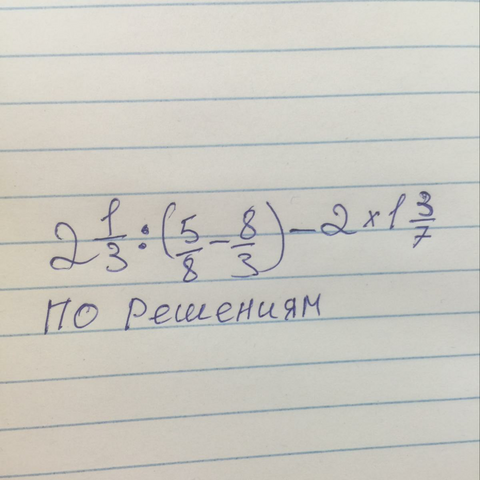 2 1/3 : (5/8 - 8/3) - 2 × 1 3/7
по решениям